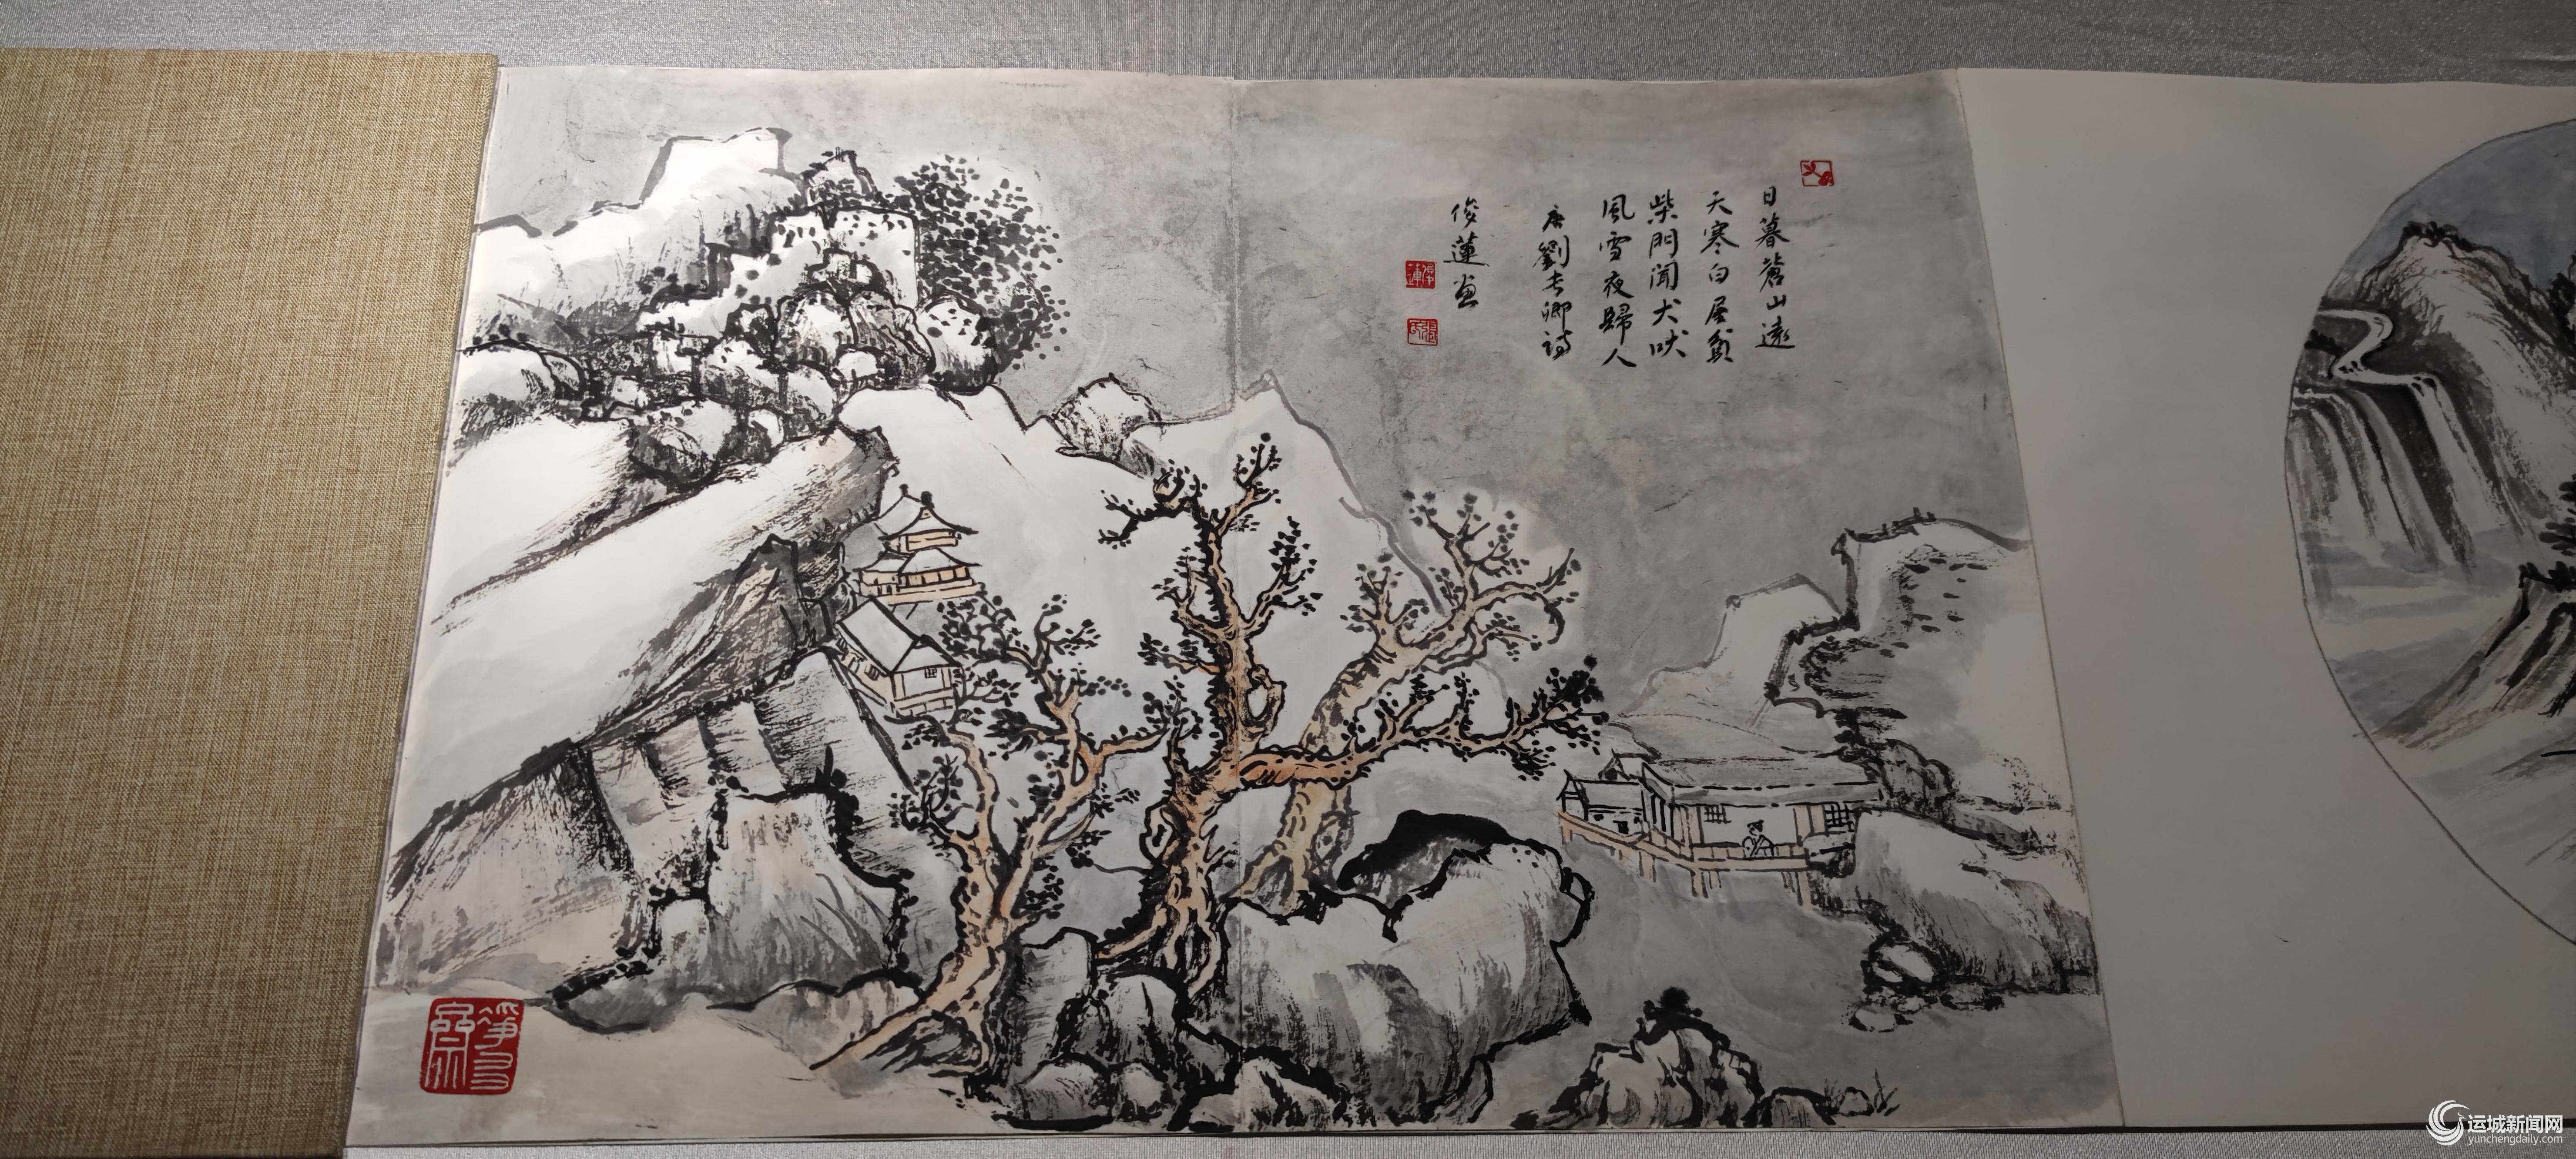 日暮蒼山遠
天寒白屋貧
柴門聞犬吠
風雪夜歸人
唐劉長卿詩
俊蓮畫
俊蓮
运城新闻网
yunchengdaily.com